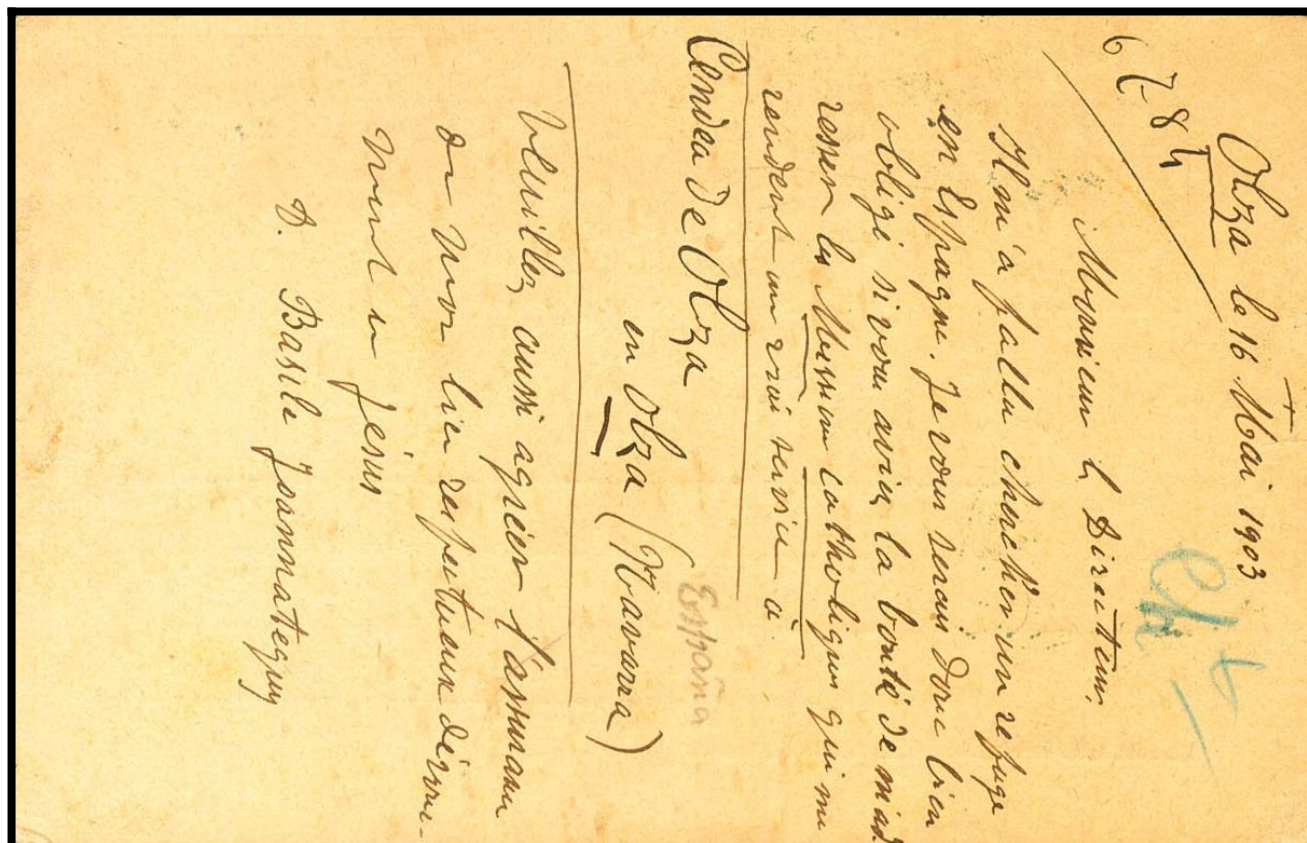 +
Olza le 16 Mai 1903
6784
Monsieur le Directeur,
Il m'a fallu chercher un refuge
en Espagne. Je vous serais donc bien
obligé si vous aviez la bonté de m'ad
resser les Missions catholiques qui me
rendent un vrai service à
Cendea de Olza
en Olza (Navarra)
España
Veuillez aussi agréer l'assurance
de mon bien respectueux dévoue-
ment en Jésus
D. Basile Joannateguy